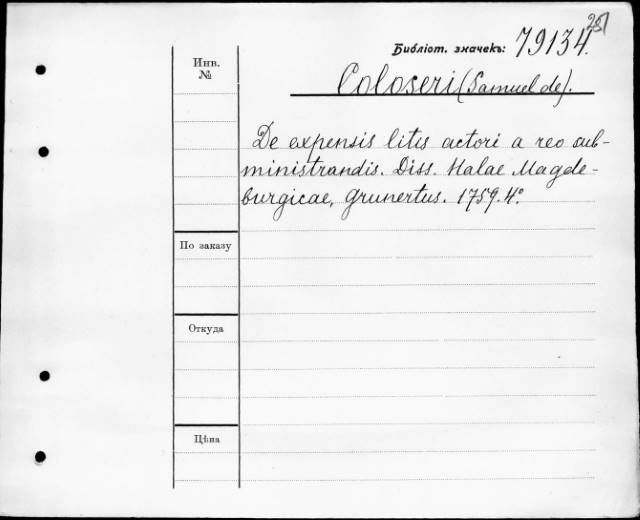 251
Библіот. значекъ: 79134.
Инв. №
Coloseri (Samuel de).
De expensis litis actori a reo sub-
ministrandis. Diss. Halae Magde-
burgicae, Grunertus. 1759. 4º.
По заказу
Откуда
Цѣна